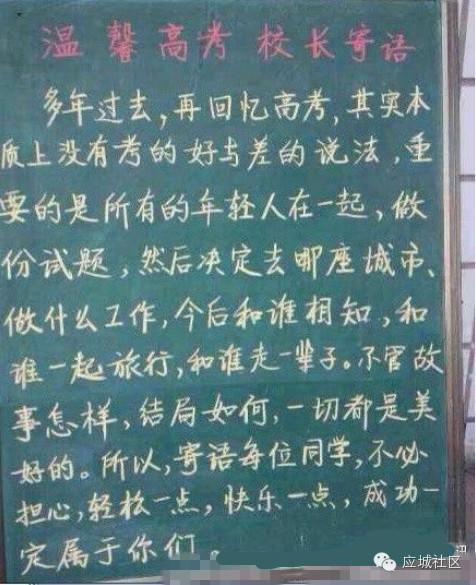 温馨高考 校长寄语
多年过去，再回忆高考，其实本
质上没有考的好与差的说法，重
要的是所有的年轻人在一起，做
份试题，然后决定去哪座城市、
做什么工作，今后和谁相知，和
谁一起旅行，和谁走一辈子。不管故
事怎样，结局如何，一切都是美
好的。所以，寄语每位同学，不必
担心，轻松一点，快乐一点，成功一
定属于你们。
应城社区